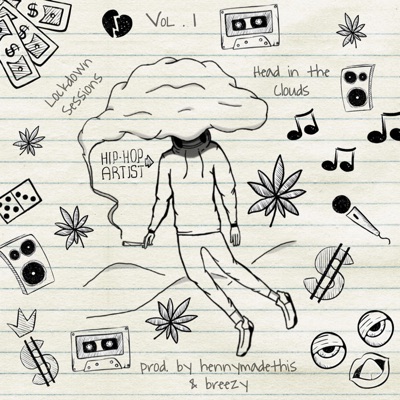 Vol. 1
Lockdown
Sessions
Head in the
Clouds
HIP-HOP
ARTIST
prod. by hennymadethis
& breezy